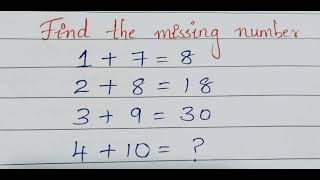 Find the missing number
1 + 7 = 8
2 + 8 = 18
3 + 9 = 30
4 + 10 = ?